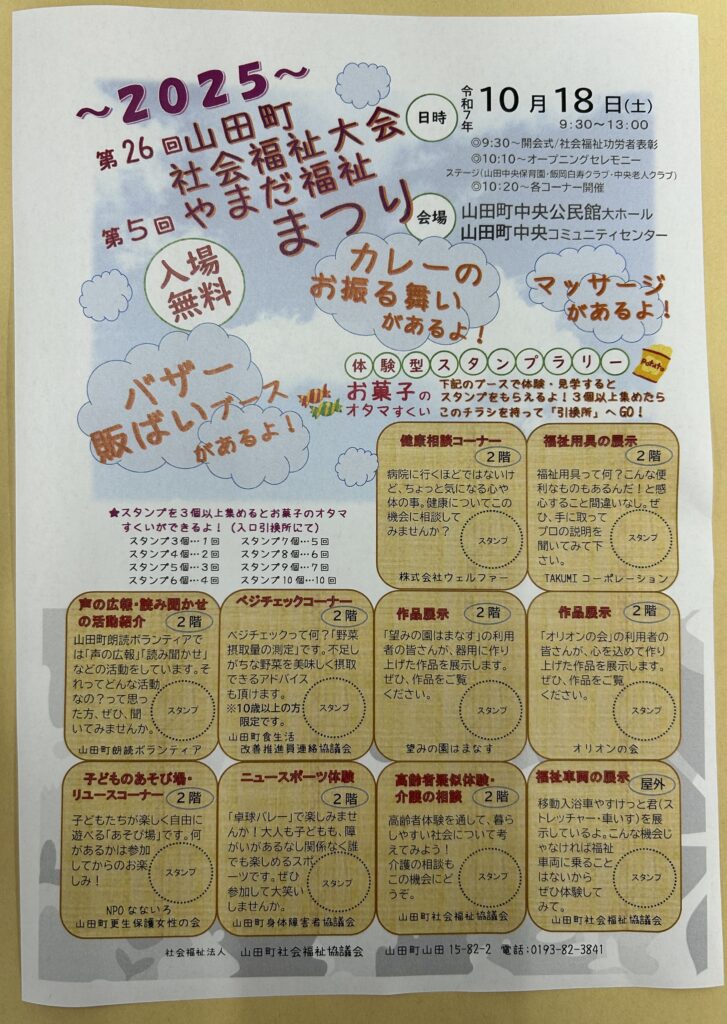 ～2025～
第26回山田町
社会福祉大会
第5回やまだ福祉
まつり
日時
令和7年
10月18日(土)
9:30～13:00
◎9:30～開会式/社会福祉功労者表彰
◎10:10～オープニングセレモニー
ステージ(山田中央保育園・飯岡白寿クラブ・中央老人クラブ)
◎10:20～各コーナー開催
会場
山田町中央公民館大ホール
山田町中央コミュニティセンター
入場
無料
カレーの
お振る舞い
があるよ！
マッサージ
があるよ！
バザー
販ばいブース
があるよ！
体験型スタンプラリー
Potato
お菓子の
オタマすくい
下記のブースで体験・見学すると
スタンプをもらえるよ！3個以上集めたら
このチラシを持って「引換所」へGO！
★スタンプを3個以上集めるとお菓子のオタマ
すくいができるよ！（入口引換所にて）
スタンプ3個…1回 スタンプ7個…5回
スタンプ4個…2回 スタンプ8個…6回
スタンプ5個…3回 スタンプ9個…7回
スタンプ6個…4回 スタンプ10個…10回
健康相談コーナー
2階
病院に行くほどではないけ
ど、ちょっと気になる心や
体の事。健康についてこの
機会に相談して
みませんか？
スタンプ
株式会社ウェルファー
福祉用具の展示
2階
福祉用具って何？こんな便
利なものもあるんだ！と感
心すること間違いなし。ぜ
ひ、手に取って
プロの説明を
聞いてみて下
さい。
スタンプ
TAKUMIコーポレーション
声の広報・読み聞かせ
の活動紹介
2階
山田町朗読ボランティアで
は「声の広報」「読み聞かせ」
などの活動をしています。そ
れってどんな活動
なの？って思っ
た方、ぜひ、聞
いてみませんか。
スタンプ
山田町朗読ボランティア
ベジチェックコーナー
2階
ベジチェックって何？「野菜
摂取量の測定」です。不足し
がちな野菜を美味しく摂取
できるアドバイス
も頂けます。
※10歳以上の方
限定です。
スタンプ
山田町食生活
改善推進員連絡協議会
作品展示
2階
「望みの園はまなす」の利用
者の皆さんが、器用に作り
上げた作品を展示します。
ぜひ、作品をご覧
ください。
スタンプ
望みの園はまなす
作品展示
2階
「オリオンの会」の利用者の
皆さんが、心を込めて作り
上げた作品を展示します。
ぜひ、作品をご覧
ください。
スタンプ
オリオンの会
子どものあそび場・
リユースコーナー
2階
子どもたちが楽しく自由に
遊べる「あそび場」です。何
があるかは参加
してからのお楽
しみ！
スタンプ
NPOなないろ
山田町更生保護女性の会
ニュースポーツ体験
2階
「卓球バレー」で楽しみませ
んか！大人も子どもも、障
がいがあるなし関係なく誰
でも楽しめるスポ
ーツです。ぜひ
参加して大笑い
しませんか。
スタンプ
山田町身体障害者協議会
高齢者疑似体験・
介護の相談
2階
高齢者体験を通して、暮ら
しやすい社会について考
えてみよう！
介護の相談も
この機会にど
うぞ。
スタンプ
山田町社会福祉協議会
福祉車両の展示
屋外
移動入浴車やすけっと君(ス
トレッチャー・車いす)を展
示しているよ。こんな機会じ
ゃなければ福祉
車両に乗ること
はないから
ぜひ体験して
みて。
スタンプ
山田町社会福祉協議会
社会福祉法人 山田町社会福祉協議会 山田町山田15-82-2 電話:0193-82-3841